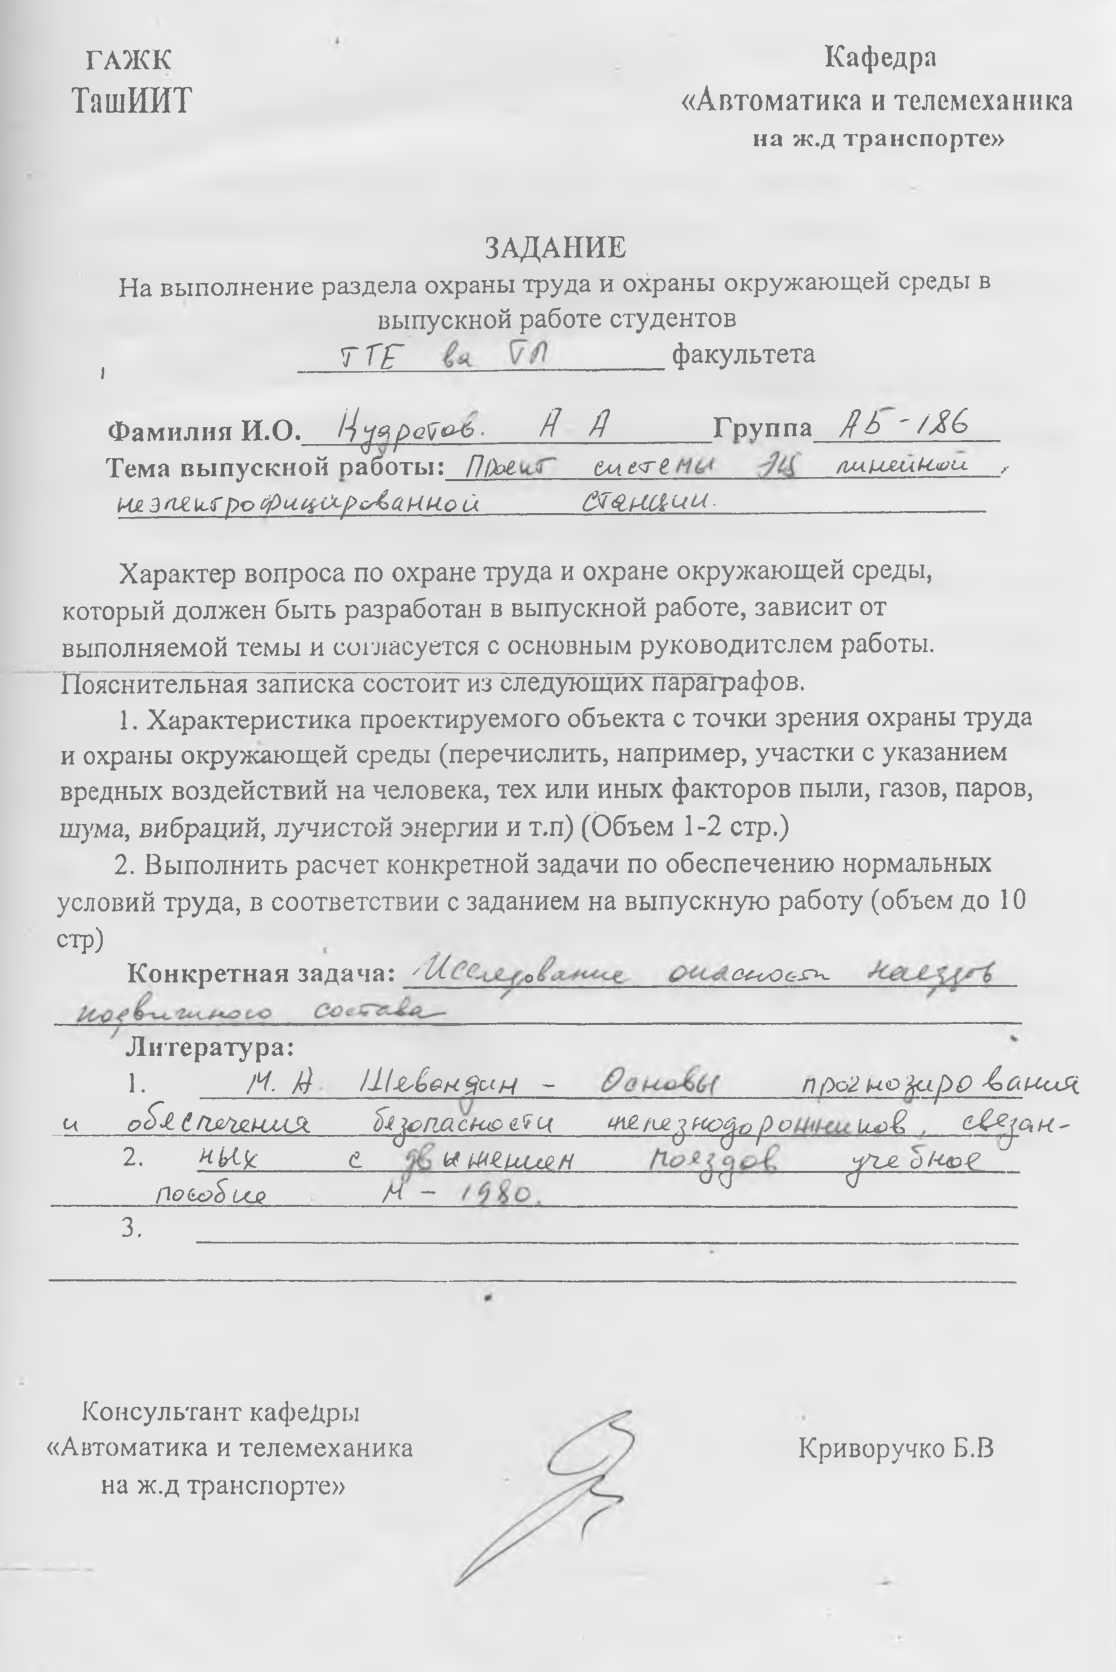 ГАЖК
ТашИИТ
Кафедра
«Автоматика и телемеханика
на ж.д транспорте»
ЗАДАНИЕ
На выполнение раздела охраны труда и охраны окружающей среды в
выпускной работе студентов
ТТЕ ва ТП факультета
Фамилия И.О. Кудратов. А А Группа АБ-186
Тема выпускной работы: Проект системы ЭЦ линейной,
неэлектрофицированной станции.
Характер вопроса по охране труда и охране окружающей среды,
который должен быть разработан в выпускной работе, зависит от
выполняемой темы и согласуется с основным руководителем работы.
Пояснительная записка состоит из следующих параграфов.
1. Характеристика проектируемого объекта с точки зрения охраны труда
и охраны окружающей среды (перечислить, например, участки с указанием
вредных воздействий на человека, тех или иных факторов пыли, газов, паров,
шума, вибраций, лучистой энергии и т.п) (Объем 1-2 стр.)
2. Выполнить расчет конкретной задачи по обеспечению нормальных
условий труда, в соответствии с заданием на выпускную работу (объем до 10
стр)
Конкретная задача: Исследование опасности наездов
подвижного состава
Литература:
1. М. А Шевандин - Основы прогнозирования
и обеспечения безопасности железнодорожников, связан-
2. ных с движением поездов учебное
пособие М - 1980.
3.
Консультант кафедры
«Автоматика и телемеханика
на ж.д транспорте»
Криворучко Б.В